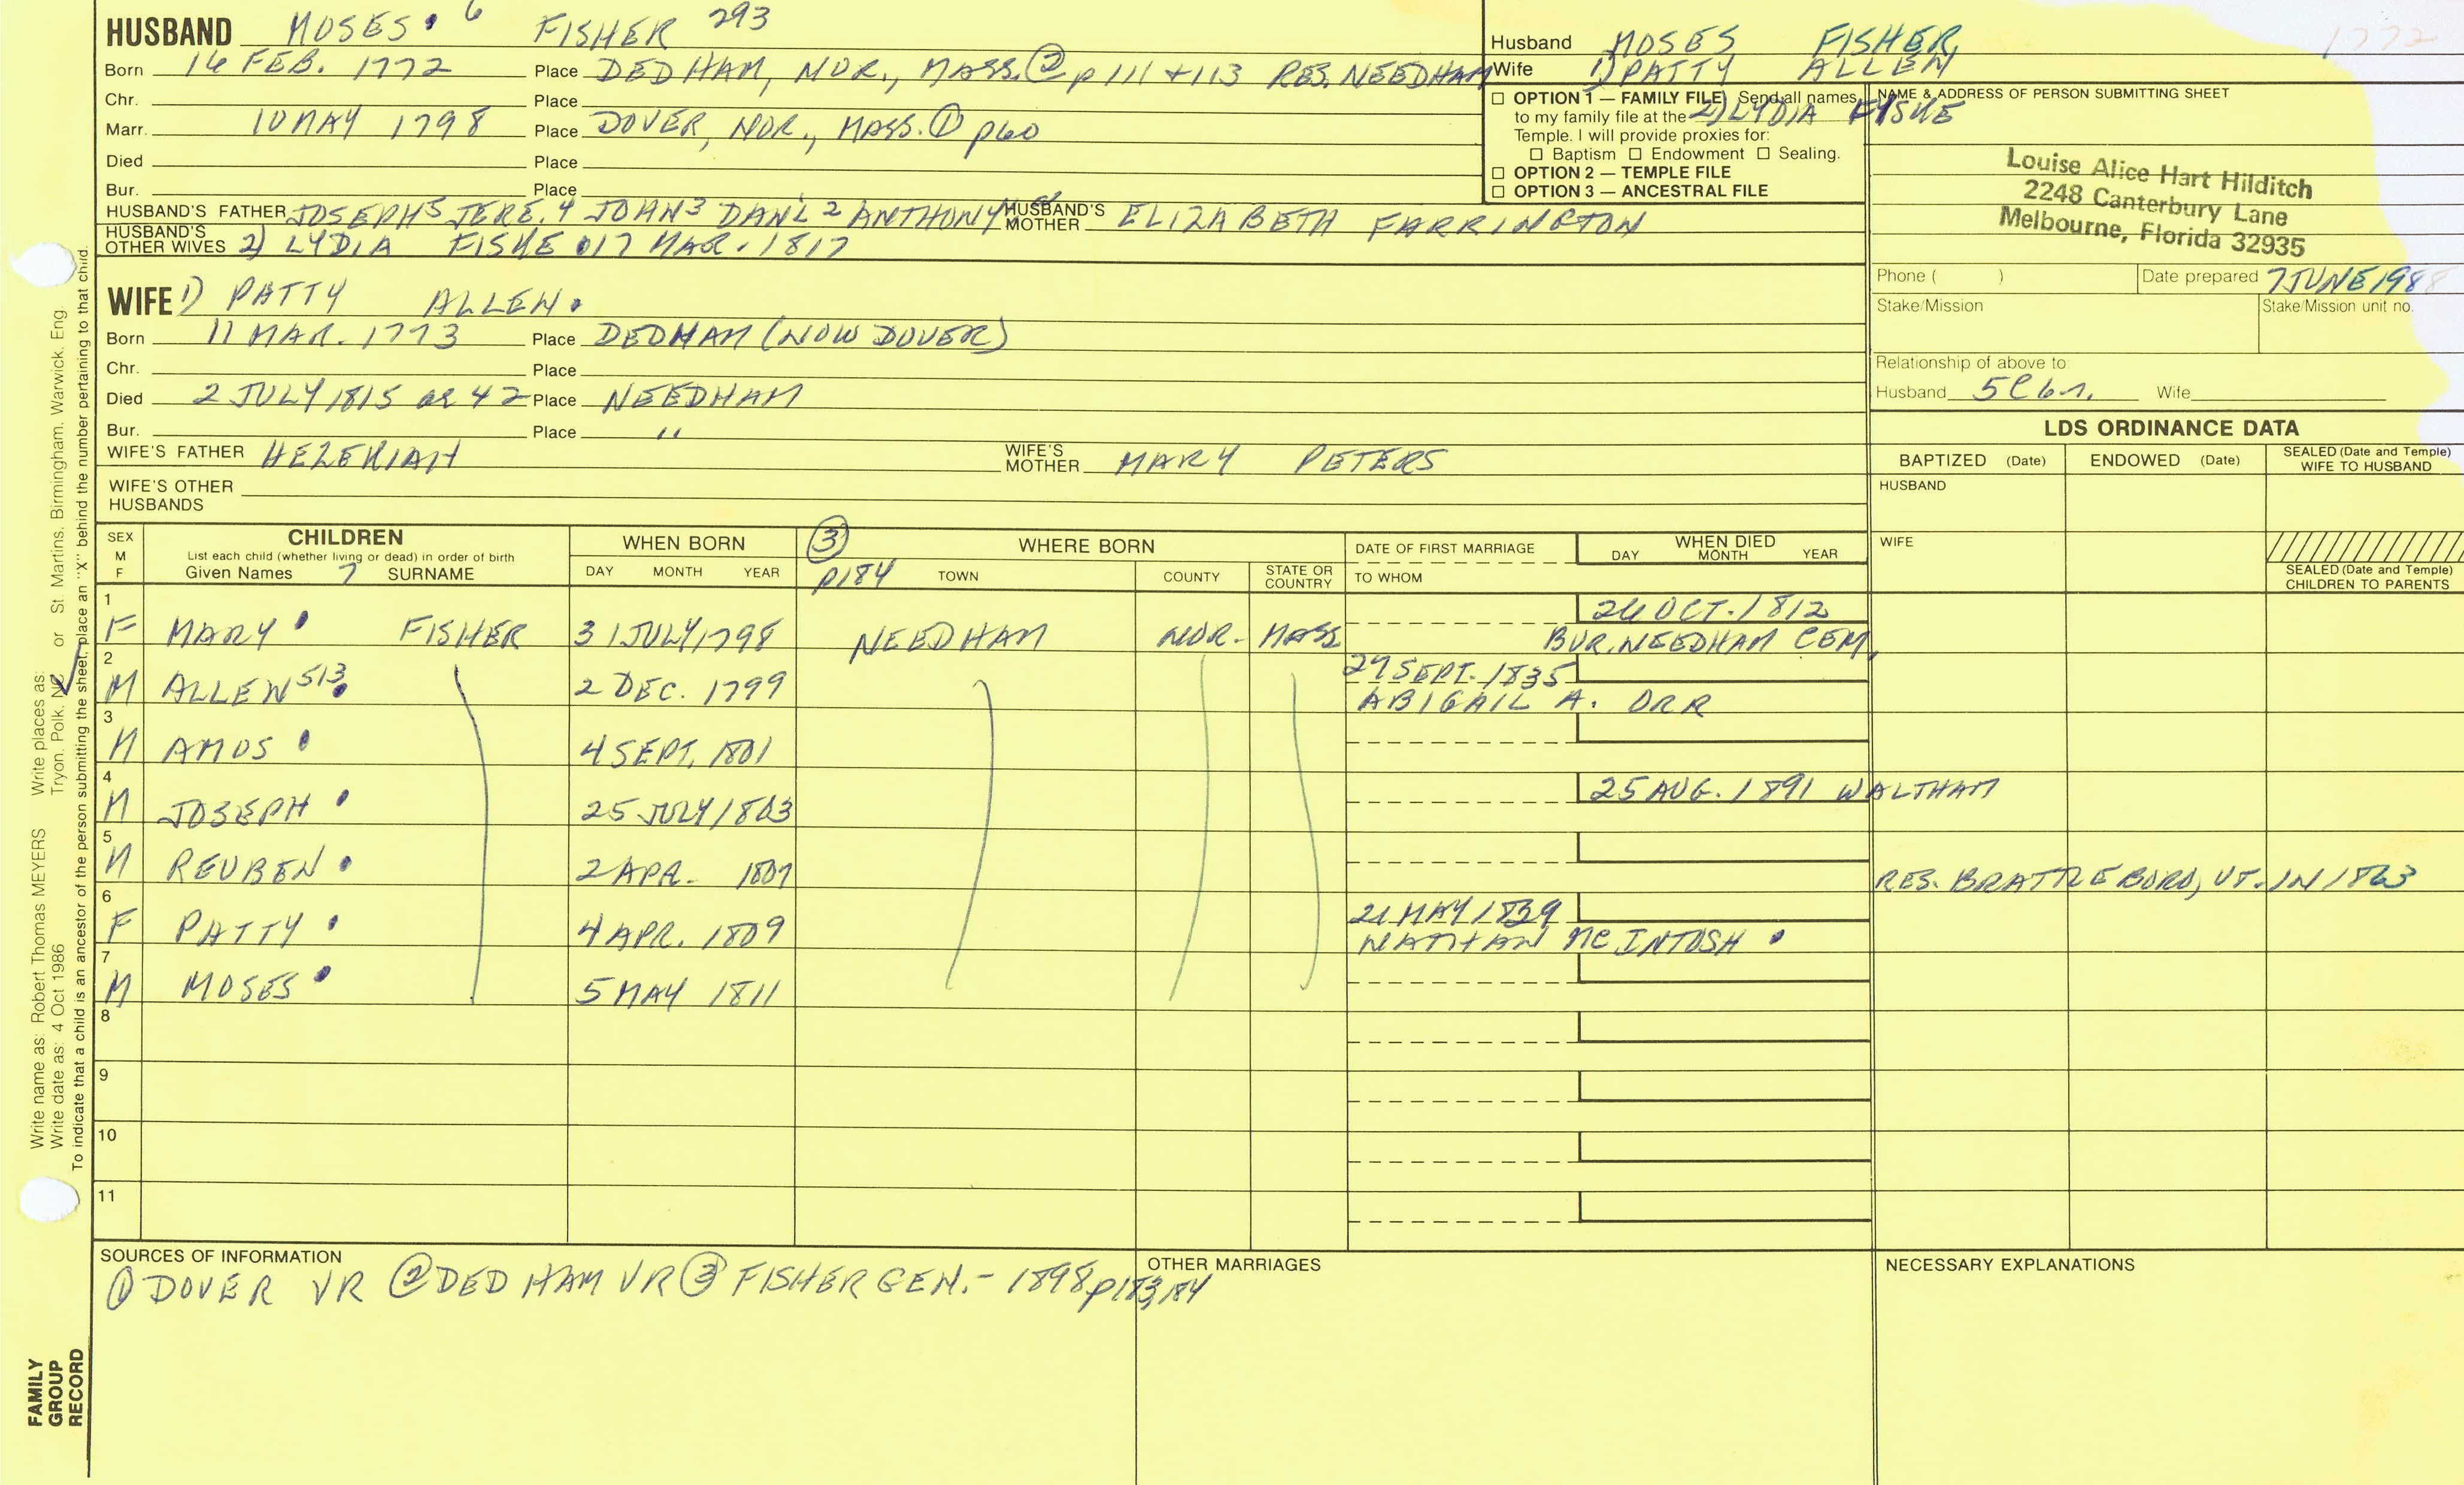 HUSBAND MOSES 6 FISHER 293
Born 16 FEB. 1772 Place DEDHAM, NOR., MASS. ② p 111 + 113 RES. NEEDHAM
Chr. Place
Marr. 10 MAY 1798 Place DOVER, NOR., MASS. ① p60
Died Place
Bur. Place
HUSBAND'S FATHER JOSEPH 5 JERE. 4 JOHN 3 DAN'L 2 ANTHONY HUSBAND'S MOTHER ELIZABETH FARRINGTON
HUSBAND'S OTHER WIVES 2) LYDIA FISKE 17 MAR. 1817
WIFE 1) PATTY ALLEN
Born 11 MAR. 1773 Place DEDHAM (NOW DOVER)
Chr. Place
Died 2 JULY 1815 ae 42 Place NEEDHAM
Bur. Place "
WIFE'S FATHER HEZEKIAH WIFE'S MOTHER MARY PETERS
WIFE'S OTHER HUSBANDS
Husband MOSES FISHER
1772
Wife 1) PATTY ALLEN
2) LYDIA FISKE
☐ OPTION 1 — FAMILY FILE Send all names
to my family file at the
Temple. I will provide proxies for:
☐ Baptism ☐ Endowment ☐ Sealing.
☐ OPTION 2 — TEMPLE FILE
☐ OPTION 3 — ANCESTRAL FILE
NAME & ADDRESS OF PERSON SUBMITTING SHEET
Louise Alice Hart Hilditch
2248 Canterbury Lane
Melbourne, Florida 32935
Phone ( ) Date prepared 7 JUNE 1988
Stake/Mission Stake/Mission unit no.
Relationship of above to:
Husband 5C6r. Wife
LDS ORDINANCE DATA
BAPTIZED (Date) ENDOWED (Date) SEALED (Date and Temple) WIFE TO HUSBAND
HUSBAND
WIFE
SEALED (Date and Temple) CHILDREN TO PARENTS
SEX M F
CHILDREN
List each child (whether living or dead) in order of birth
Given Names 7 SURNAME
WHEN BORN
DAY MONTH YEAR
③ p184
WHERE BORN
TOWN COUNTY STATE OR COUNTRY
DATE OF FIRST MARRIAGE
TO WHOM
WHEN DIED
DAY MONTH YEAR
1 F MARY FISHER 31 JULY 1798 NEEDHAM NOR. MASS 26 OCT. 1812
BUR. NEEDHAM CEM.
2 M ALLEN 513 2 DEC. 1799 29 SEPT. 1835
ABIGAIL A. ORR
3 M AMOS 4 SEPT. 1801
4 M JOSEPH 25 JULY 1803 25 AUG. 1891 WALTHAM
5 M REUBEN 2 APR. 1807 RES. BRATTLEBORO, VT. IN 1863
6 F PATTY 4 APR. 1809 21 MAY 1839
NATHAN McINTOSH
7 M MOSES 5 MAY 1811
8
9
10
11
SOURCES OF INFORMATION
① DOVER VR ② DEDHAM VR ③ FISHER GEN. - 1898 p183, 184
OTHER MARRIAGES
NECESSARY EXPLANATIONS
Write name as: Robert Thomas MEYERS Write places as: or St. Martins, Birmingham, Warwick, Eng
Write date as: 4 Oct 1986 Tryon, Polk, NC
To indicate that a child is an ancestor of the person submitting the sheet, place an "X" behind the number pertaining to that child.
FAMILY
GROUP
RECORD